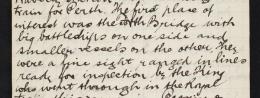 train for Perth. The first place of
interest was the Forth Bridge with
big battleships on one side and
smaller vessels on the other. They
were a fine sight ranged in lines
ready for inspection by the King
who went through in the Royal